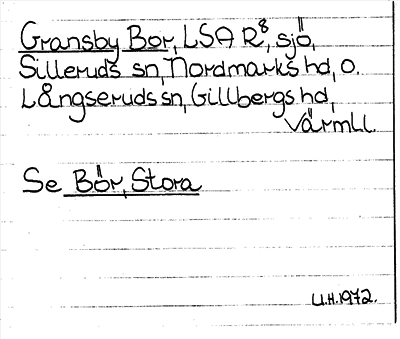 Gransby Bor, LSA R⁸, sjö,
Silleruds sn, Nordmarks hd, o.
Långseruds sn, Gillbergs hd,
Värmll.
Se Bör, Stora
U.H. 1972.